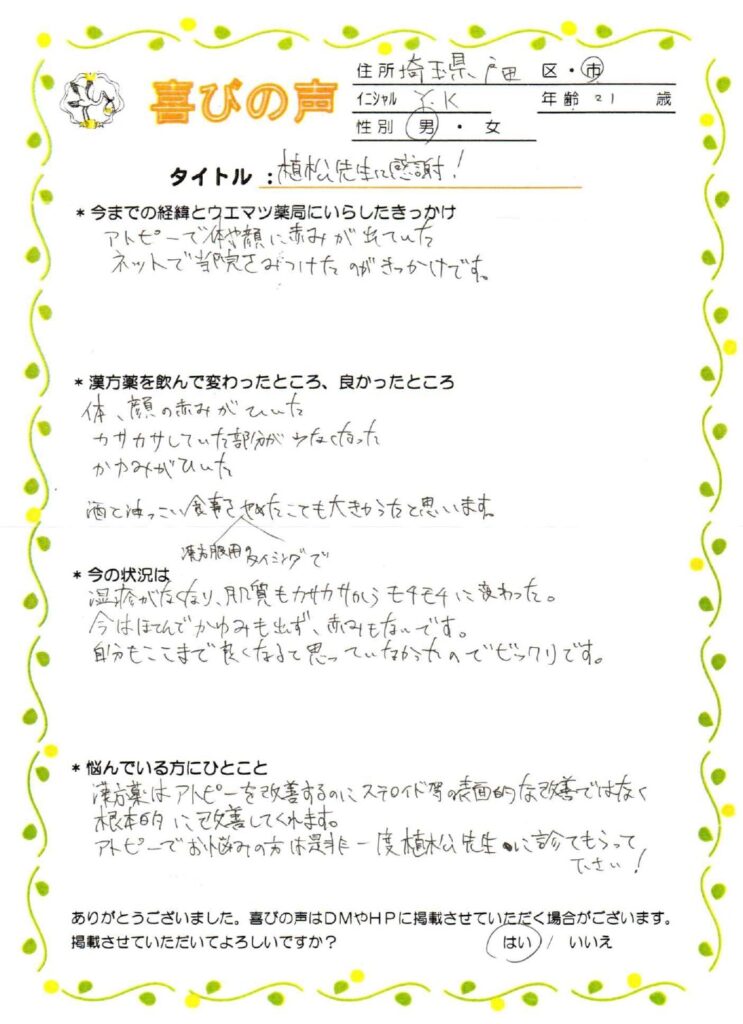 喜びの声
住所 埼玉県、戸田 区・市
イニシャル Y.K 年齢 21 歳
性別 男・女
タイトル：植松先生に感謝！
＊今までの経緯とウエマツ薬局にいらしたきっかけ
アトピーで体や顔に赤みが出ていた
ネットで当院をみつけたのがきっかけです。
＊漢方薬を飲んで変わったところ、良かったところ
体、顔の赤みがひいた
カサカサしていた部分が少なくなった
かゆみがひいた
酒と油っこい食事をやめたことも大きかったと思います。
漢方服用のタイミングで
＊今の状況は
湿疹がなくなり、肌質もカサカサからモチモチに変わった。
今はほてんでかゆみも出ず、赤みもないです。
自分もここまで良くなると思っていなかったのでビックリです。
＊悩んでいる方にひとこと
漢方薬はアトピーを改善するのにステロイド等の表面的な改善ではなく
根本的に改善してくれます。
アトピーでお悩みの方は是非一度植松先生に診てもらって
下さい！
ありがとうございました。喜びの声はDMやHPに掲載させていただく場合がございます。
掲載させていただいてよろしいですか？ はい / いいえ